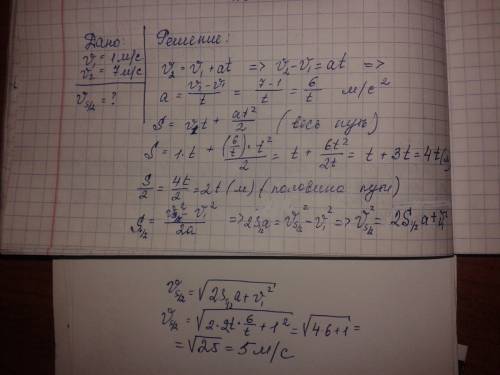 Дано:
v₁ = 1 м/с
v₂ = 7 м/с
v_{s/2} = ?
Решение:
v₂ = v₁ + at => v₂ - v₁ = at =>
a = (v₂ - v₁)/t = (7-1)/t = 6/t м/с²
S = v₁t + at²/2 (весь путь)
S = 1·t + ((6/t)·t²)/2 = t + 6t²/2t = t + 3t = 4t(м)
S/2 = 4t/2 = 2t (м) (половина пути)
S_{1/2} = (v_{s/2}² - v₁²)/2a => 2S_{1/2}a = v_{s/2}² - v₁² => v_{s/2}² = 2S_{1/2}a + v₁²
v_{s/2} = √(2S_{1/2}a + v₁²)
v_{s/2} = √(2·2t·6/t + 1²) = √(4·6+1) =
= √25 = 5 м/с